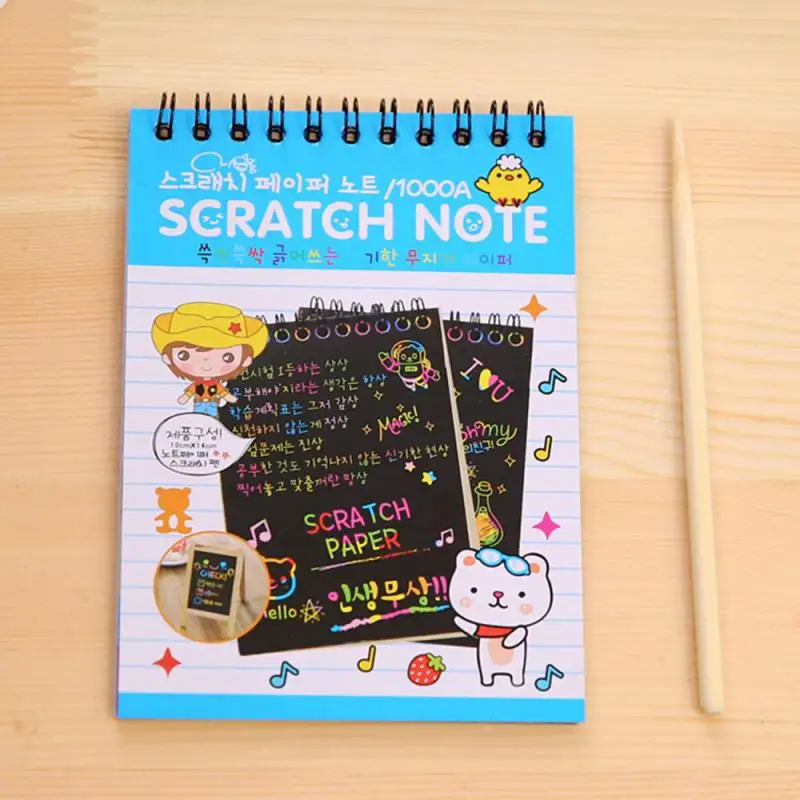 스크래치 페이퍼 노트 /1000A
SCRATCH NOTE
쓱싹쓱싹 긁어쓰는 기한 무지 이퍼
전시험 1등하는 상상
부해야지라는 생각은 항상
학습계획표는 그저 감상
실천하지 않는게 정상
험문제는 진상
공부한것도 기억나지 않는 신기한 현상
찍어놓고 맞출꺼란 망상
MAGIC!
SCRATCH
PAPER
인생무상!!
hello
I U
oh my
의친구!
제품구성!
10cmX14cm
노트페이퍼
스크래치 펜
CHECK!